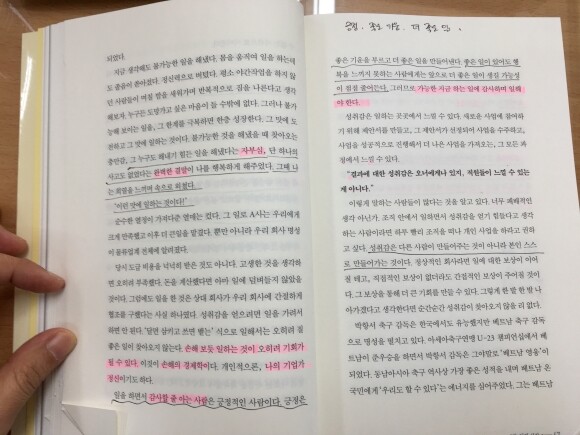 되었다.
지금 생각해도 불가능한 일을 해냈다. 몸을 움직여 일을 하는데
도 졸음이 쏟아졌다. 정신력으로 버텼다. 평소 야간작업을 하지 않
던 사람들이 며칠 밤을 새워가며 반복적으로 짐을 나른다고 생각
해보자. 누구든 도망가고 싶은 마음이 들 수밖에 없다. 그러나 불가
능해 보이는 일을, 그 한계를 극복하면 한층 성장한다. 그 맛에 도
전하고 그 맛에 일하는 것이다. 불가능한 것을 해냈을 때 찾아오는
충만감, 그 누구도 해내기 힘든 일을 해냈다는 자부심, 단 하나의
사고도 없었다는 완벽한 결말이 나를 행복하게 해주었다. 그때 나
는 희열을 느끼며 속으로 외쳤다.
‘이런 맛에 일하는 것이다!’
순수한 열정이 가져다준 열매는 컸다. 그 일로 A사는 우리에게
크게 만족했고 이후 더 큰일을 맡겼다. 뿐만 아니라 우리 회사 명성
이 물류업계 전체에 알려졌다.
당시 도급 비용을 넉넉히 받은 것도 아니다. 고생한 것을 생각하
면 오히려 부족했다. 돈을 계산했다면 아마 일에 덤벼들지 않았을
것이다. 그럼에도 일을 한 것은 상대 회사가 우리 회사에 간절하게
헬프를 구했다는 사실 하나였다. 성취감을 얻으려면 일을 가려서
하면 안 된다. ‘달면 삼키고 쓰면 뱉는’ 식으로 일해서는 오히려 절
좋은 일이 찾아오지 않는다. 손해 보듯 일하는 것이 오히려 기회가
될 수 있다. 이것이 손해의 경제학이다. 개인적으론, 나의 기업가
정신이기도 하다.
일을 하면서 감사할 줄 아는 사람은 긍정적인 사람이다. 긍정은
긍정, 좋은 기운, 더 좋은 일
좋은 기운을 부르고 더 좋은 일을 만들어낸다. 좋은 일이 있어도 행
복을 느끼지 못하는 사람에게는 앞으로 더 좋은 일이 생길 가능성
이 점점 줄어든다. 그러므로 가능한 지금 하는 일에 감사하며 일해
야 한다.
성취감은 일하는 곳곳에서 느낄 수 있다. 새로운 사업에 참여하
기 위해 제안서를 만들고, 그 제안서가 선정되어 사업을 수주하고,
사업을 성공적으로 진행해서 더 나은 사업을 가져오는, 그 모든 과
정에서 느낄 수 있다.
“결과에 대한 성취감은 오너에게나 있지, 직원들이 느낄 수 있는
게 아니다.”
이렇게 말하는 사람들이 많다는 것을 알고 있다. 너무 패배적인
생각 아닌가. 조직 안에서 일하면서 성취감을 얻기 힘들다고 생각
하는 사람이라면 하루 빨리 조직을 떠나 개인 사업을 하라고 권하
고 싶다. 성취감은 다른 사람이 만들어주는 것이 아니라 본인 스스
로 만들어가는 것이다. 정상적인 회사라면 일에 대한 보상이 이어
질 테고, 직접적인 보상이 없더라도 간접적인 보상이 주어질 것이
다. 그 보상을 통해 더 큰 기회를 만들 수 있다. 그렇게 한 발 한 발 나
아가겠다고 생각한다면 순간순간 성취감이 찾아오지 않을 리 없다.
박항서 축구 감독은 한국에서도 유능했지만 베트남 축구 감독
으로 명성을 떨치고 있다. 아세아축구연맹 U-23 챔피언십에서 베
트남이 준우승을 하면서 박항서 감독은 그야말로 ‘베트남 영웅’이
되었다. 동남아시아 축구 역사상 가장 좋은 성적을 내며 베트남 온
국민에게 ‘우리도 할 수 있다’는 에너지를 심어주었다. 그는 베트남